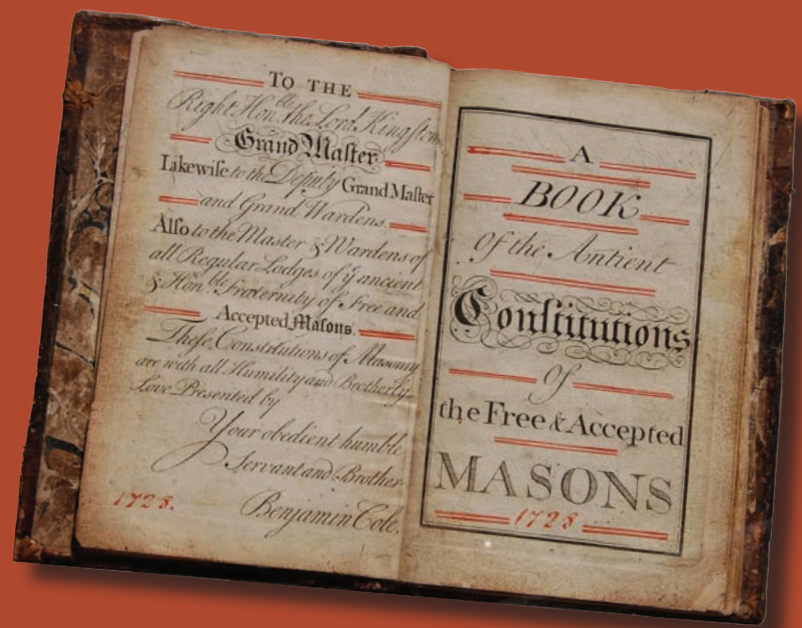 TO THE
Right Honble the Lord Kingston
Grand Master
Likewiſe to the Deputy Grand Maſter
and Grand Wardens
Alſo to the Master & Wardens of
all Regular Lodges of ye ancient
& Honble Fraternity of Free and
Accepted Maſons.
Theſe Constitutions of Masonry
are with all Humility and Brotherly
Love Presented by
Your obedient humble
Servant and Brother
Benjamin Cole.
1728.
A
BOOK
of the Antient
Conſtitutions
Of
the Free & Accepted
MASONS
1728